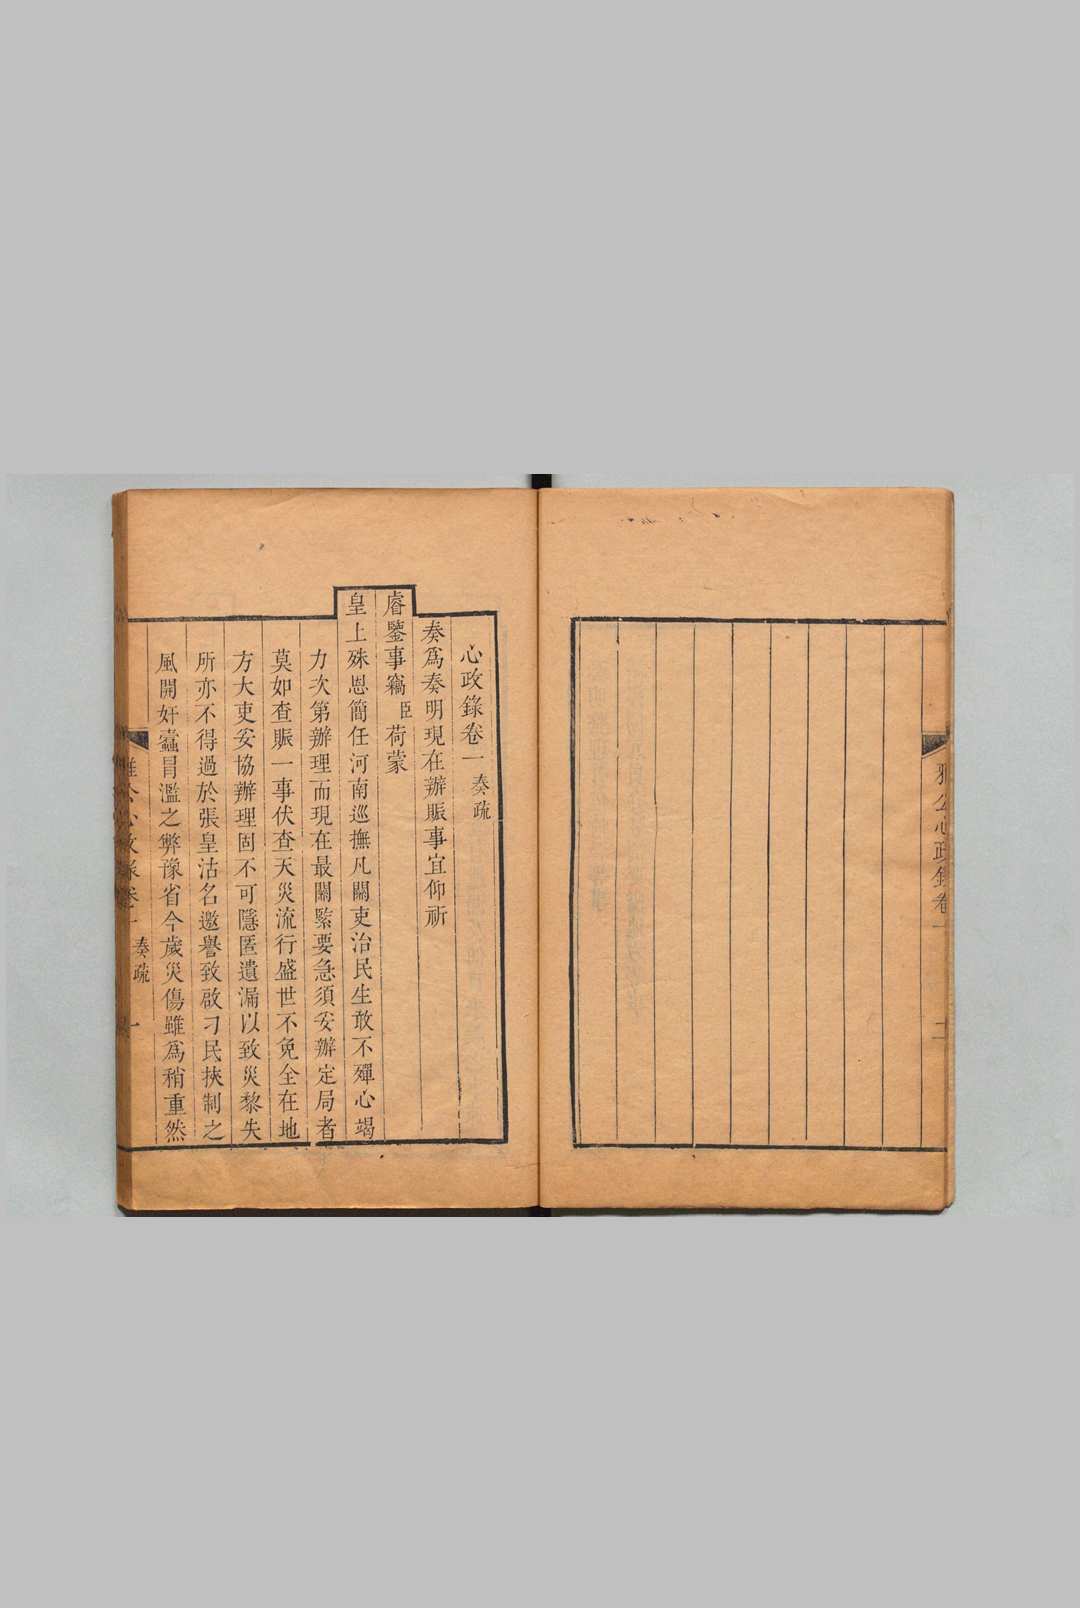 雅公心政錄卷一
心政錄卷一 奏疏
奏爲奏明現在辦賑事宜仰祈
睿鑒事竊臣荷蒙
皇上殊恩簡任河南巡撫凡關吏治民生敢不殫心竭
力次第辦理而現在最關緊要急須妥辦定局者
莫如查賑一事伏查天災流行盛世不免全在地
方大吏妥協辦理固不可隱匿遺漏以致災黎失
所亦不得過於張皇沽名邀譽致啟刁民挾制之
風開奸蠹冐濫之弊豫省今歲災傷雖爲稍重然
雅公心政錄卷一 奏疏 一